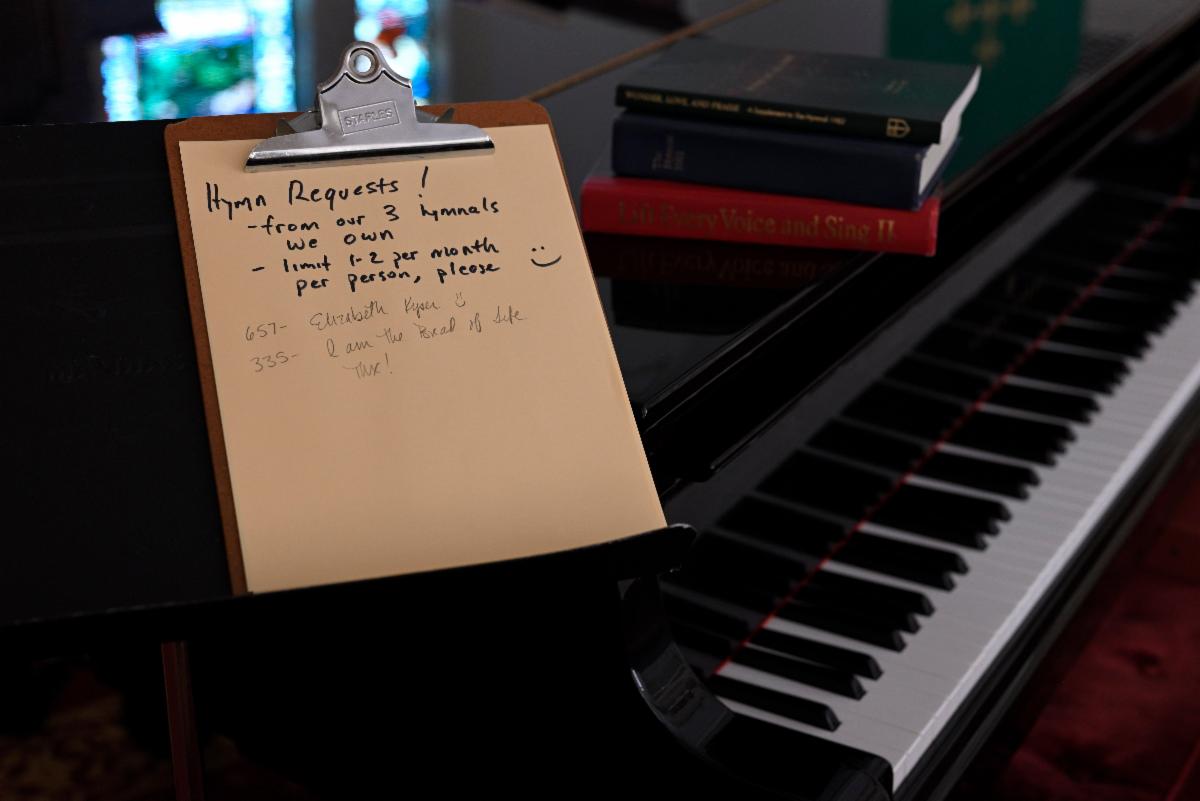 STAPLES
Hymn Requests!
- from our 3 hymnals
we own
- limit 1-2 per month
per person, please :)
657- Elizabeth Kyser ☺
335- I am the Bread of Life
Thx!
WONDER, LOVE, AND PRAISE A Supplement to The Hymnal 1982
The Hymnal 1982
Lift Every Voice and Sing II